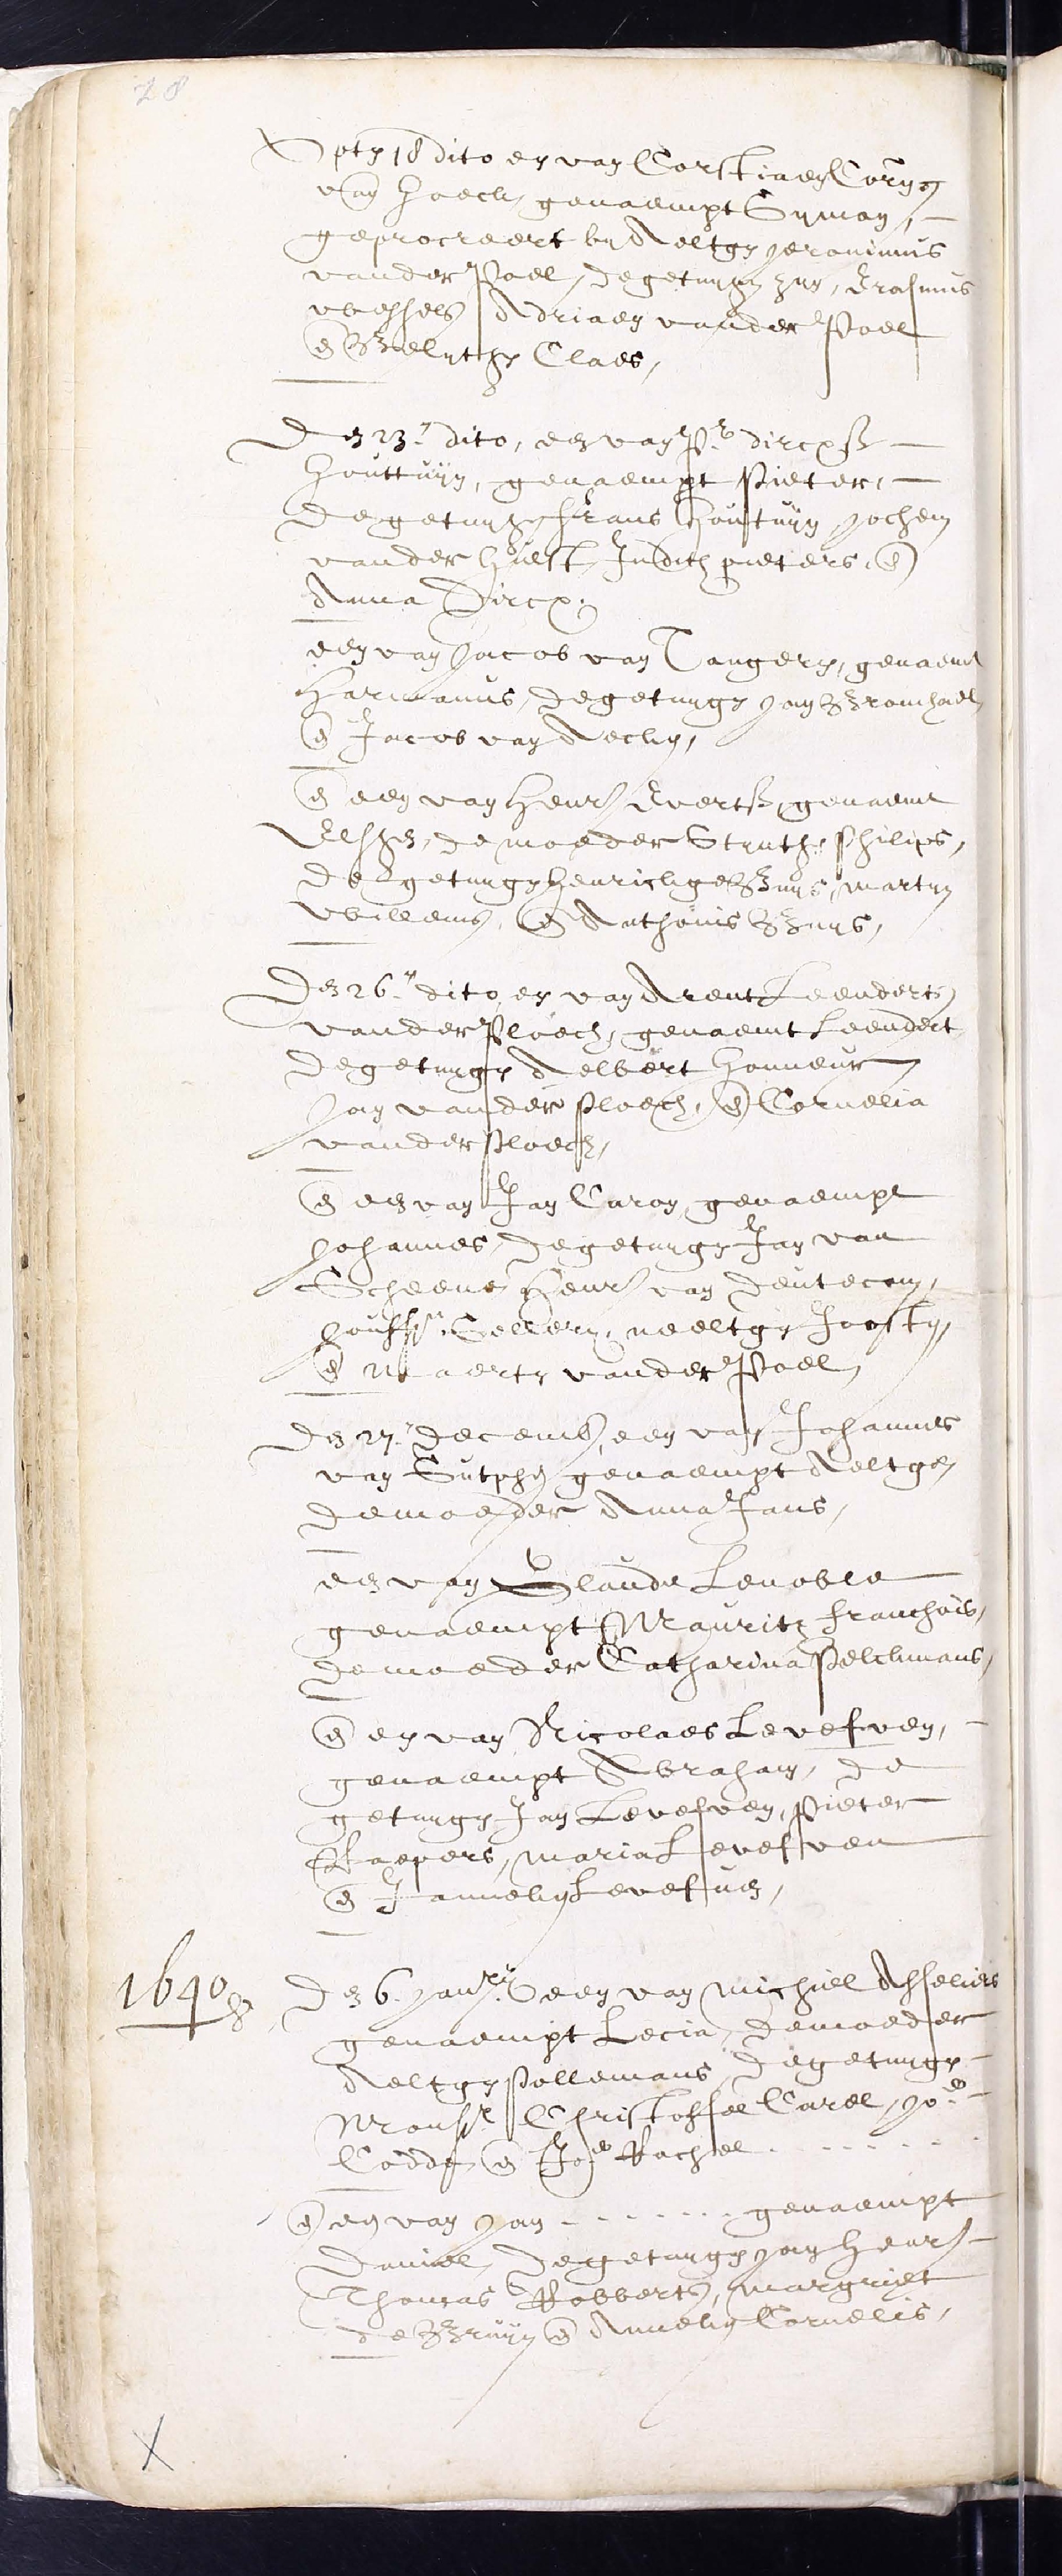 28
Opten 18 dito en van Corstiaen Corns
van Hoeck, genaempt Symon, —
geprocreert by Aeltgen Jeronimus
vander Poel, de getuygen zyn, Erasmus
Wessels Adriaen vander Poel
en Belytgen Claes,
Den 23.en dito, een van Pr. dircxss —
Houttuijn, genaempt Pieter, —
de getuygen Frans Houttuijn Jochem
vander Hulst, Judith pieters, en
Anna Dircx.
een van Jacob van Tangeren, genaemt
Harmanus, de getuygen Jan
en Jacob van Aecken,
en een van Henr. Evertss, genaemt
Elsken, de moeder Styntgen Philips,
de getuygen Henrickge Buys, Marten
Willems, en Anthonis Buys,
Den 26.en dito, en van Arent Leenderts
vander Ploech, genaemt Leendert
de getuygen Aelbert Honneur
Jan vander ploech, en Cornelia
vander ploech,
en een van Jan Caron genaempt
Johannes, de getuygen Jan van
Scheene Henr. van Deutecom,
Jouffr. Gellers, neeltgen Joosten,
en Maerten vander Poel,
Den 27.en decemb, een van Johannes
van Sutphen genaempt Aeltgen
de moeder Anna Jans,
een van Claude Lenoble
genaempt Mauritz franchois,
de moeder Catharina Pelckmans,
en en van Nicolaes Levesven, —
genaempt Abraham, de
getuygen Jan Levesven, Pieter
Raepers, maria Levesven
en Janneken Levesven,
1640
Den 6. Janry. een van Michiel Asseliers
genaempt Lecia, de moeder
Aeltgen Pollemans, de getuygen —
Monsr. Christoffel Carel, Jor.
Codde, en Jor. Rachel . . . . . . .
en en van Jan . . . . . . genaempt
Daniel, de getuygen Jan Henr. —
Thomas Robberts, margriet
de Bruijn en Anneken Cornelis,
X